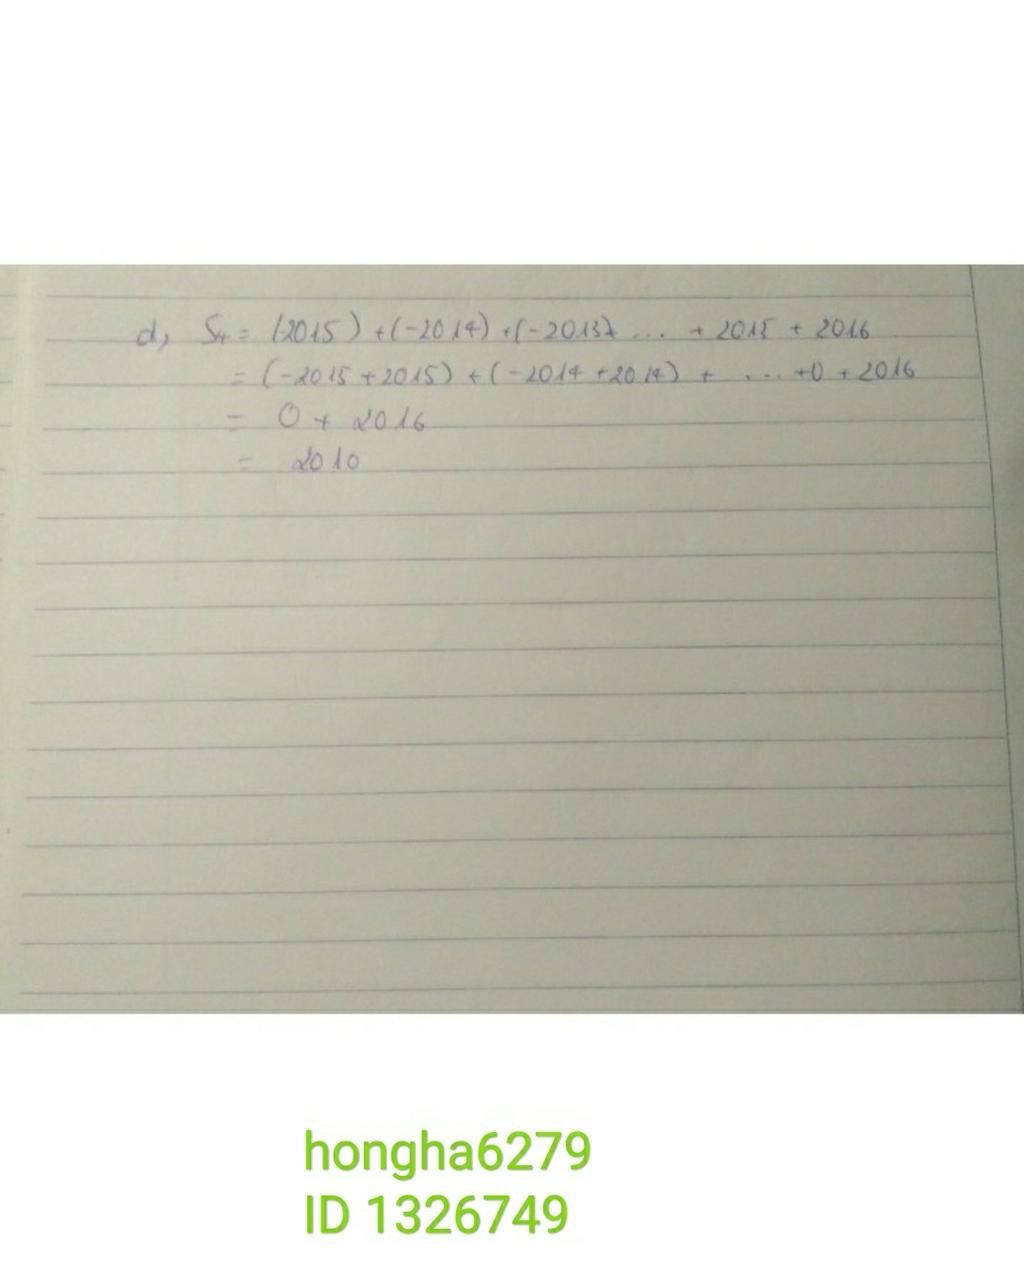 d, S4 = (-2015) + (-2014) + (-2013)+ ... + 2015 + 2016
= (-2015 + 2015) + (-2014 + 2014) + ... +0 + 2016
= 0 + 2016
= 2010
hongha6279
ID 1326749